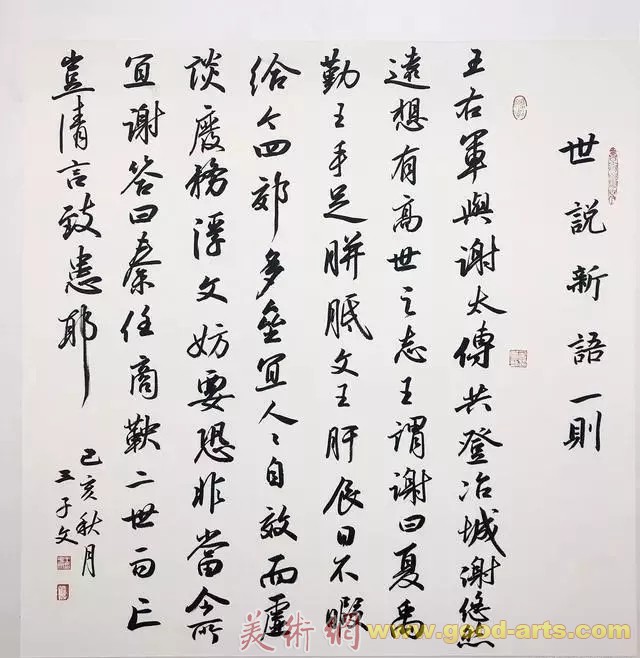 世說新語一則
王右軍與謝太傅共登冶城謝悠然
遠想有高世之志王謂謝曰夏禹
勤王手足胼胝文王旰食日不暇
給今四郊多壘宜人〻自效而虛
談廢務浮文妨要恐非當今所
宜謝答曰秦任商鞅二世而亡
豈清言致患耶
己亥秋月
王子文
美術網
www.good-arts.com